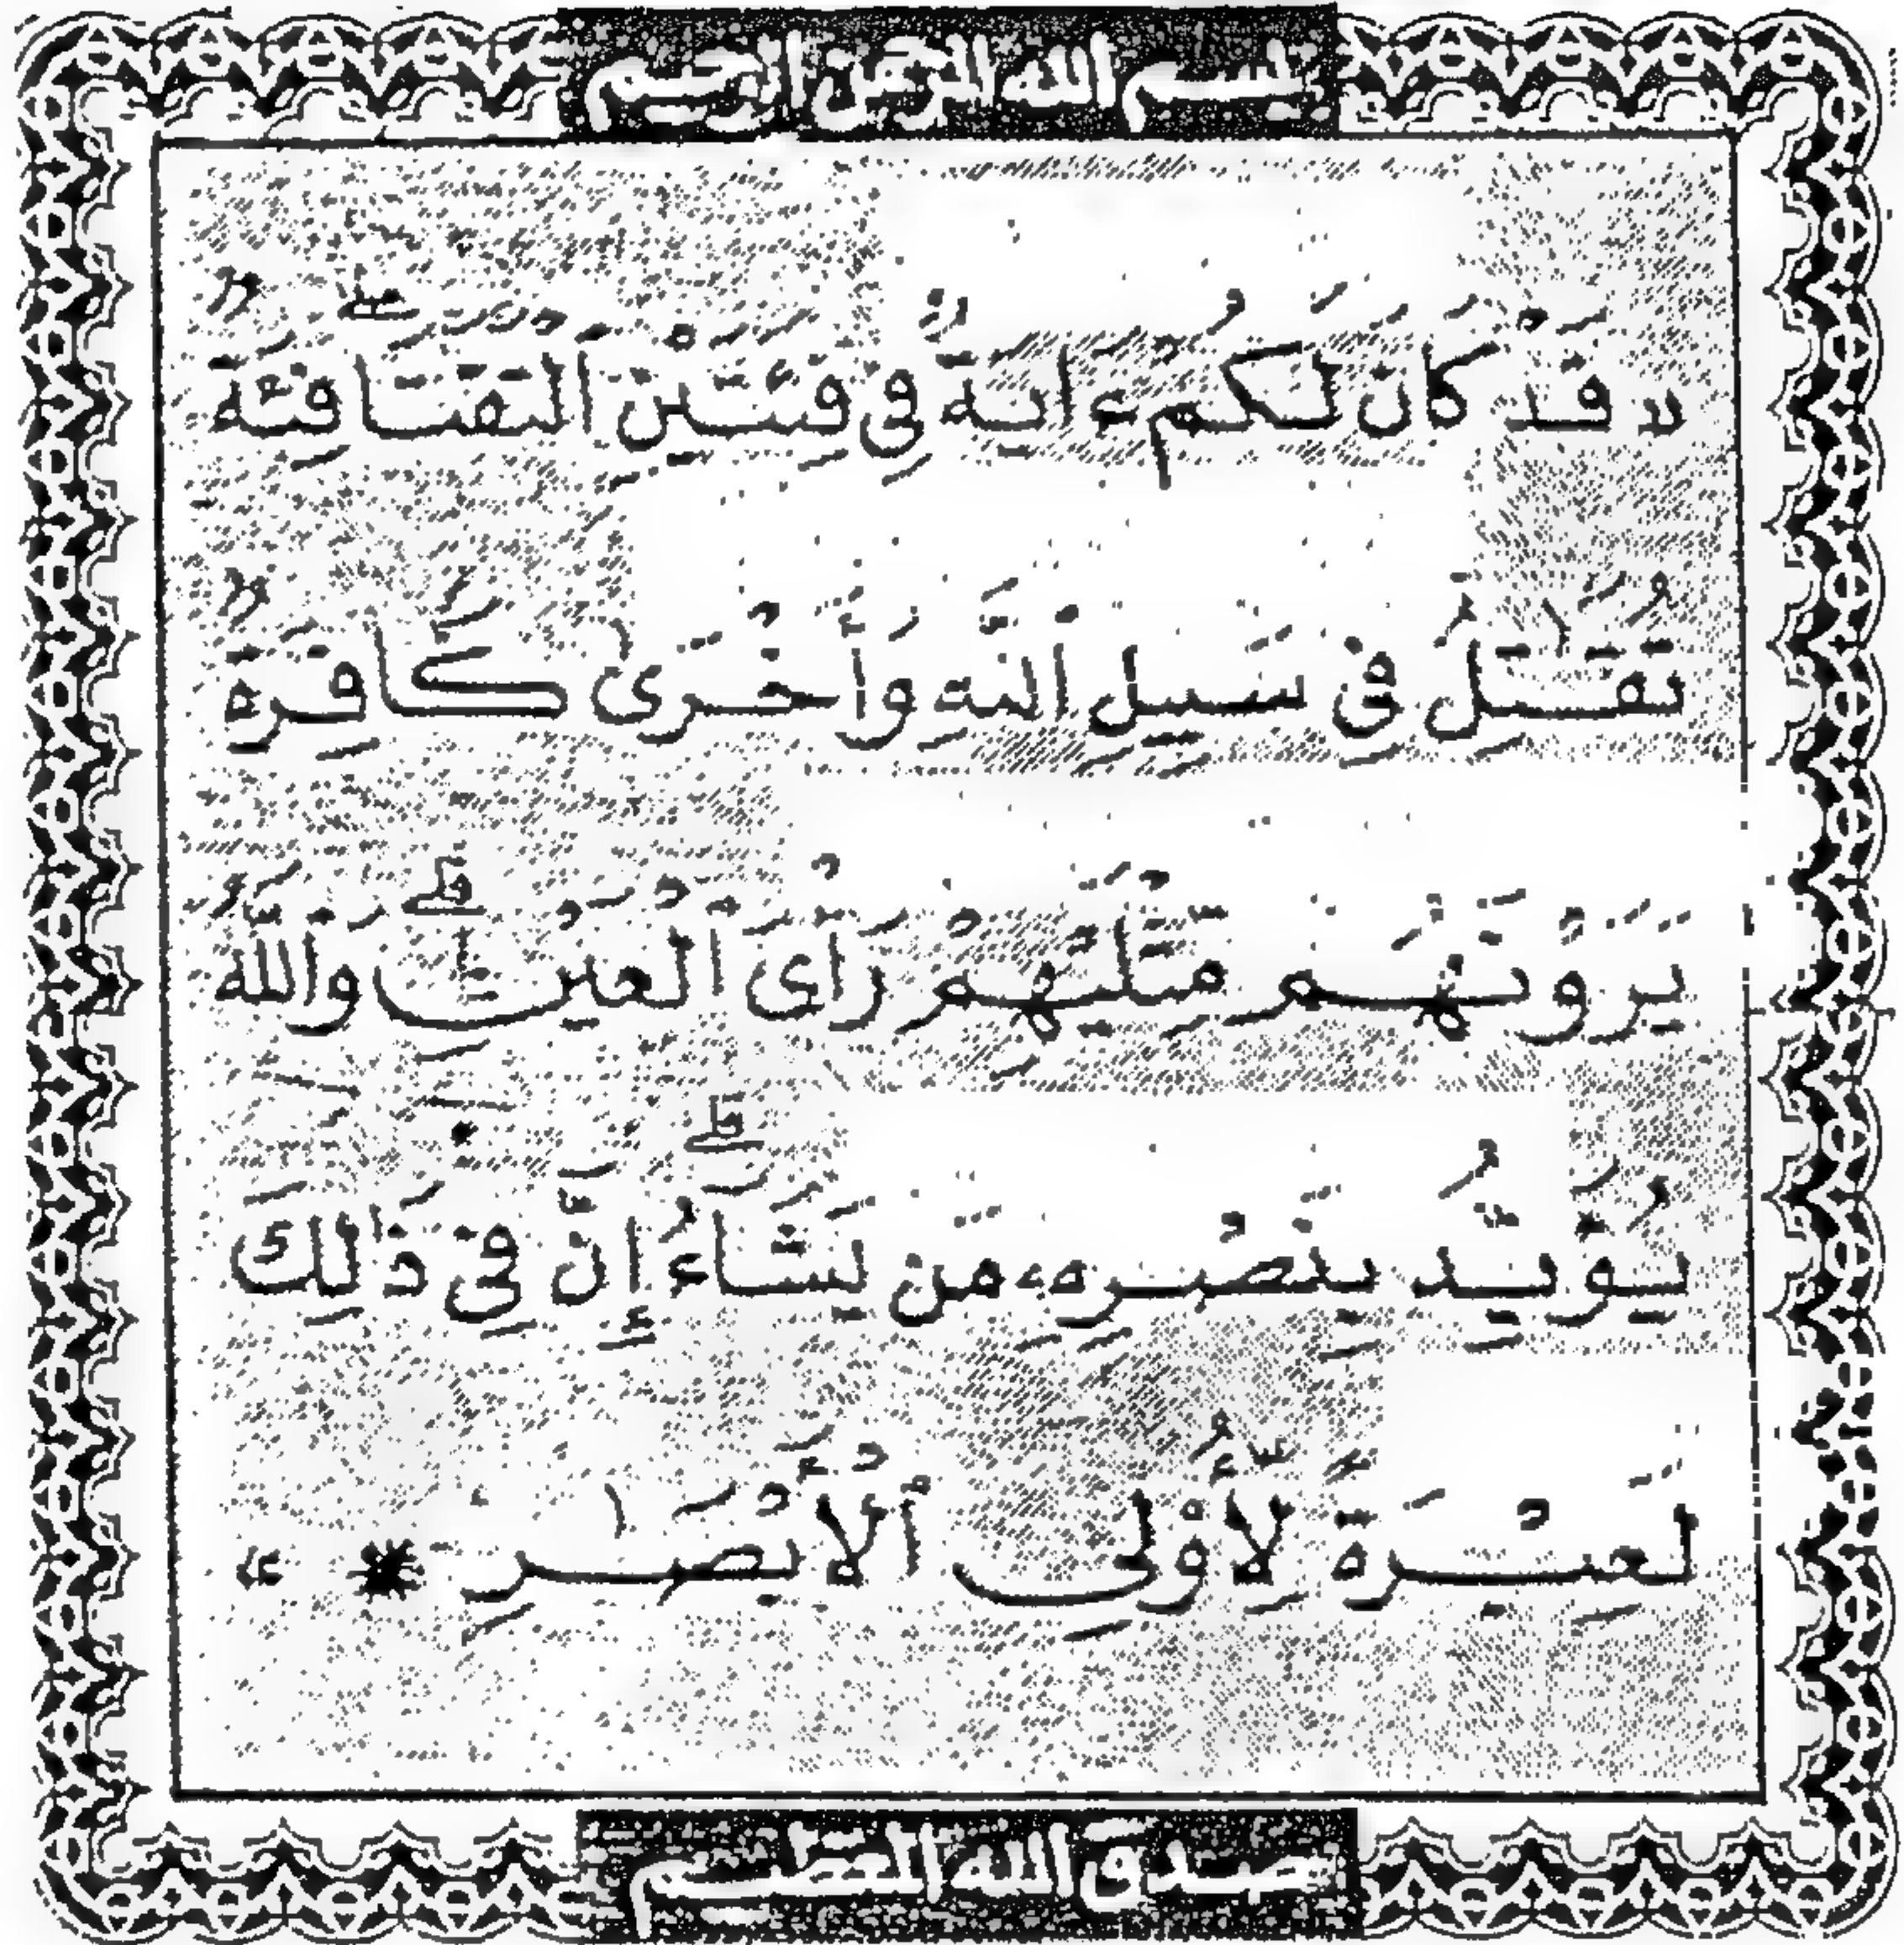 بسم الله الرحمن الرحيم
« قَدْ كَانَ لَكُمْ ءَايَةٌ فِي فِئَتَيْنِ ٱلْتَقَتَا ۖ فِئَةٌ
تُقَٰتِلُ فِي سَبِيلِ ٱللَّهِ وَأُخْرَىٰ كَافِرَةٌ
يَرَوْنَهُم مِّثْلَيْهِمْ رَأْىَ ٱلْعَيْنِ ۚ وَٱللَّهُ
يُؤَيِّدُ بِنَصْرِهِۦ مَن يَشَآءُ ۗ إِنَّ فِي ذَٰلِكَ
لَعِبْرَةً لِّأُو۟لِي ٱلْأَبْصَٰرِ * »
صدق الله العظيم